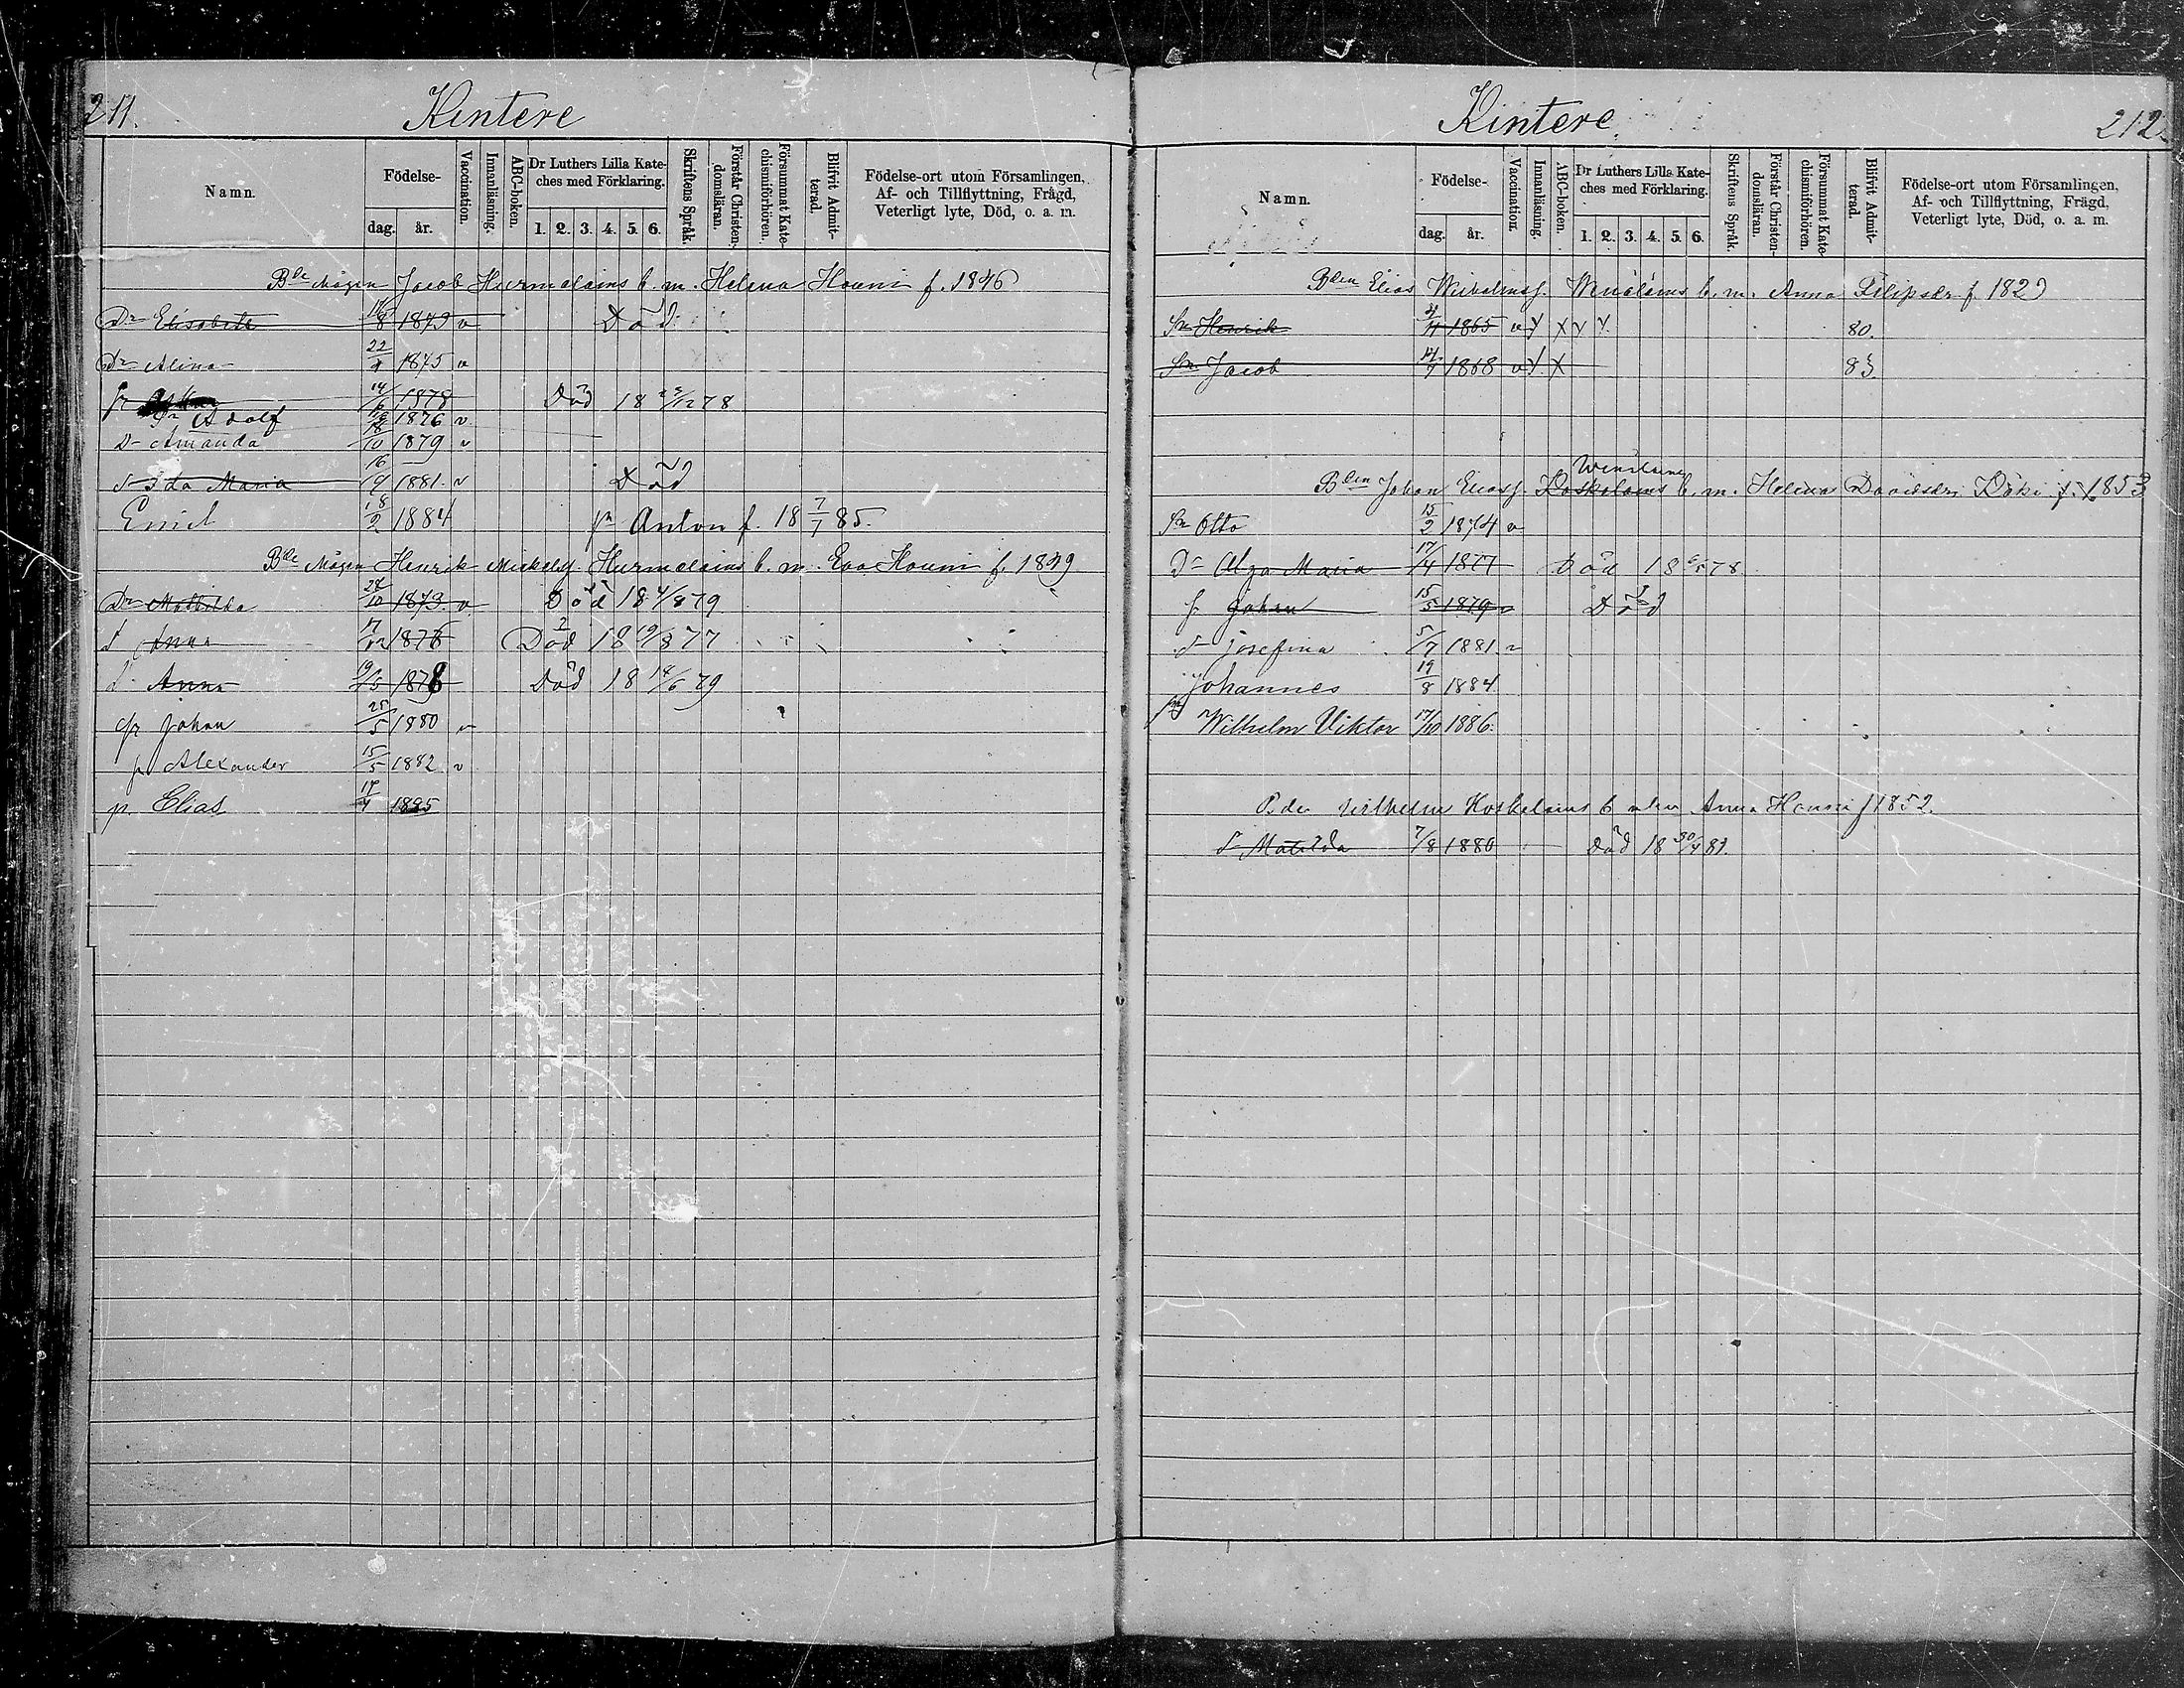 211.
Kintere
Namn.
Födelse-
dag.
år.
Vaccination.
Innanläsning.
ABC-boken.
Dr Luthers Lilla Kate-
ches med Förklaring.
1. 2. 3. 4. 5. 6.
Skriftens Språk.
Förstår Christen-
domsläran.
Försummat Kate-
chismiförhören.
Blifvit Admit-
terad.
Födelse-ort utom Församlingen,
Af- och Tillflyttning, Frägd,
Veterligt lyte, Död, o. a. m.
Bde Mågen Jacob Hurmalains b. m. Helena Houni f. 1846
Dr Elisabeth 8 1873 v Död
Dr Alina 22 1875 v
14/6 1878 Död 18 78
Adolf 1876 v
Dr Amanda 10 1879 v
Dr Ida Maria 16 1881 v Död
Emil 18/2 1884 sn Anton f. 18 7/7 85.
Bde Mågen Henrik Mickelsf. Hurmalains b. m. Eva Houni f. 1849
Dr Mathilda 28/10 1873 v Död 18 4/8 79
d Anna 17/12 1876 Död 18 19/8 77
d Anna 19/5 1878 Död 18 14/6 79
sn Johan 25/5 1880 v
sn Alexander 15/5 1882 v
Elias 17/4 1885
Kintere
212.
Namn.
Födelse-
dag.
år.
Vaccination.
Innanläsning.
ABC-boken.
Dr Luthers Lilla Kate-
ches med Förklaring.
1. 2. 3. 4. 5. 6.
Skriftens Språk.
Förstår Christen-
domsläran.
Försummat Kate-
chismiförhören.
Blifvit Admit-
terad.
Födelse-ort utom Församlingen,
Af- och Tillflyttning, Frägd,
Veterligt lyte, Död, o. a. m.
Bden Elias b. m. Anna Filipsdr f. 1829
Sn Henrik 1865 v x x x x 80.
Sn Jacob 1868 v x x 83
Bden Johan Eliasf. b. m. Helena Davidsdr f. 1853
Sn Otto 15/2 1874 v
Dr Maria 17/4 1877 Död 18 78
s Johan 15/5 1879 v Död
d Josefina 5/7 1881 v
Johannes 19/8 1884
sn Wilhelm Viktor 17/10 1886.
Bde Wilhelm Koskelains b m Anna Houni f 1852.
d Matilda 7/8 1880 Död 18 30/4 81.